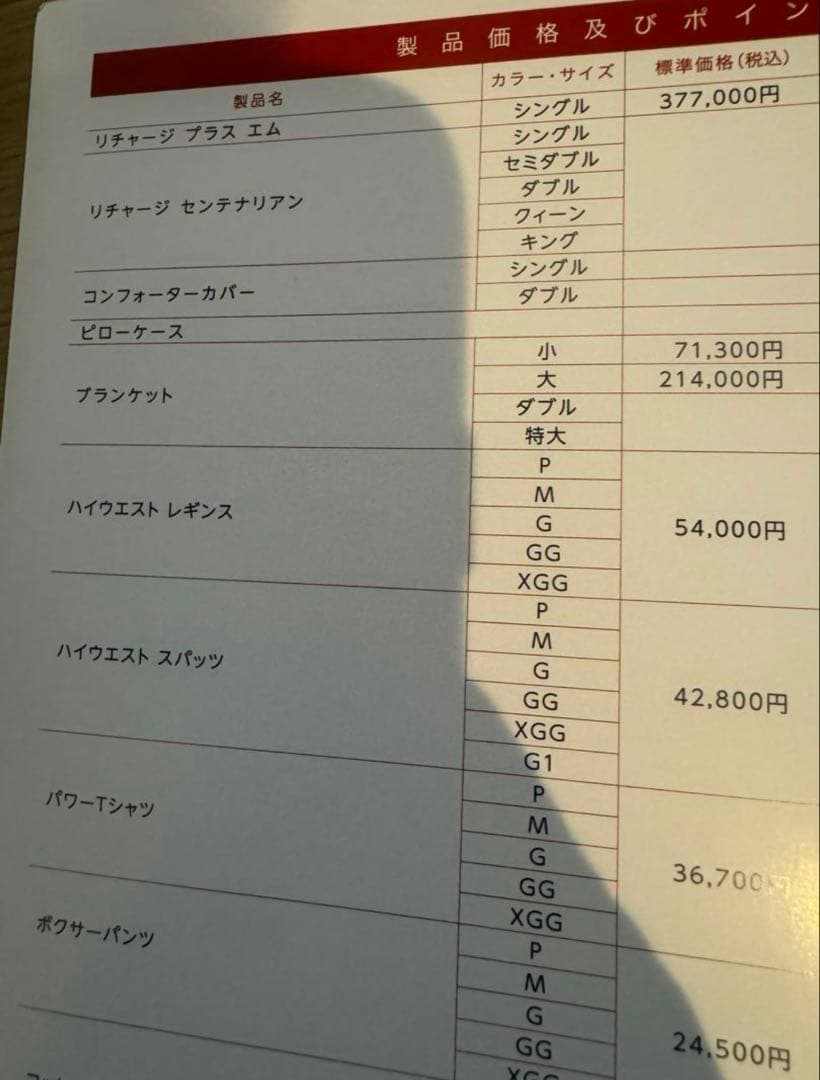 製品価格及びポイン
製品名 カラー・サイズ 標準価格(税込)
リチャージ プラス エム シングル 377,000円
リチャージ センテナリアン シングル
セミダブル
ダブル
クィーン
キング
コンフォーターカバー シングル
ダブル
ピローケース
ブランケット 小 71,300円
大 214,000円
ダブル
特大
ハイウエスト レギンス P 54,000円
M
G
GG
XGG
ハイウエスト スパッツ P 42,800円
M
G
GG
XGG
G1
パワーTシャツ P 36,700円
M
G
GG
XGG
ボクサーパンツ P 24,500円
M
G
GG
XGG